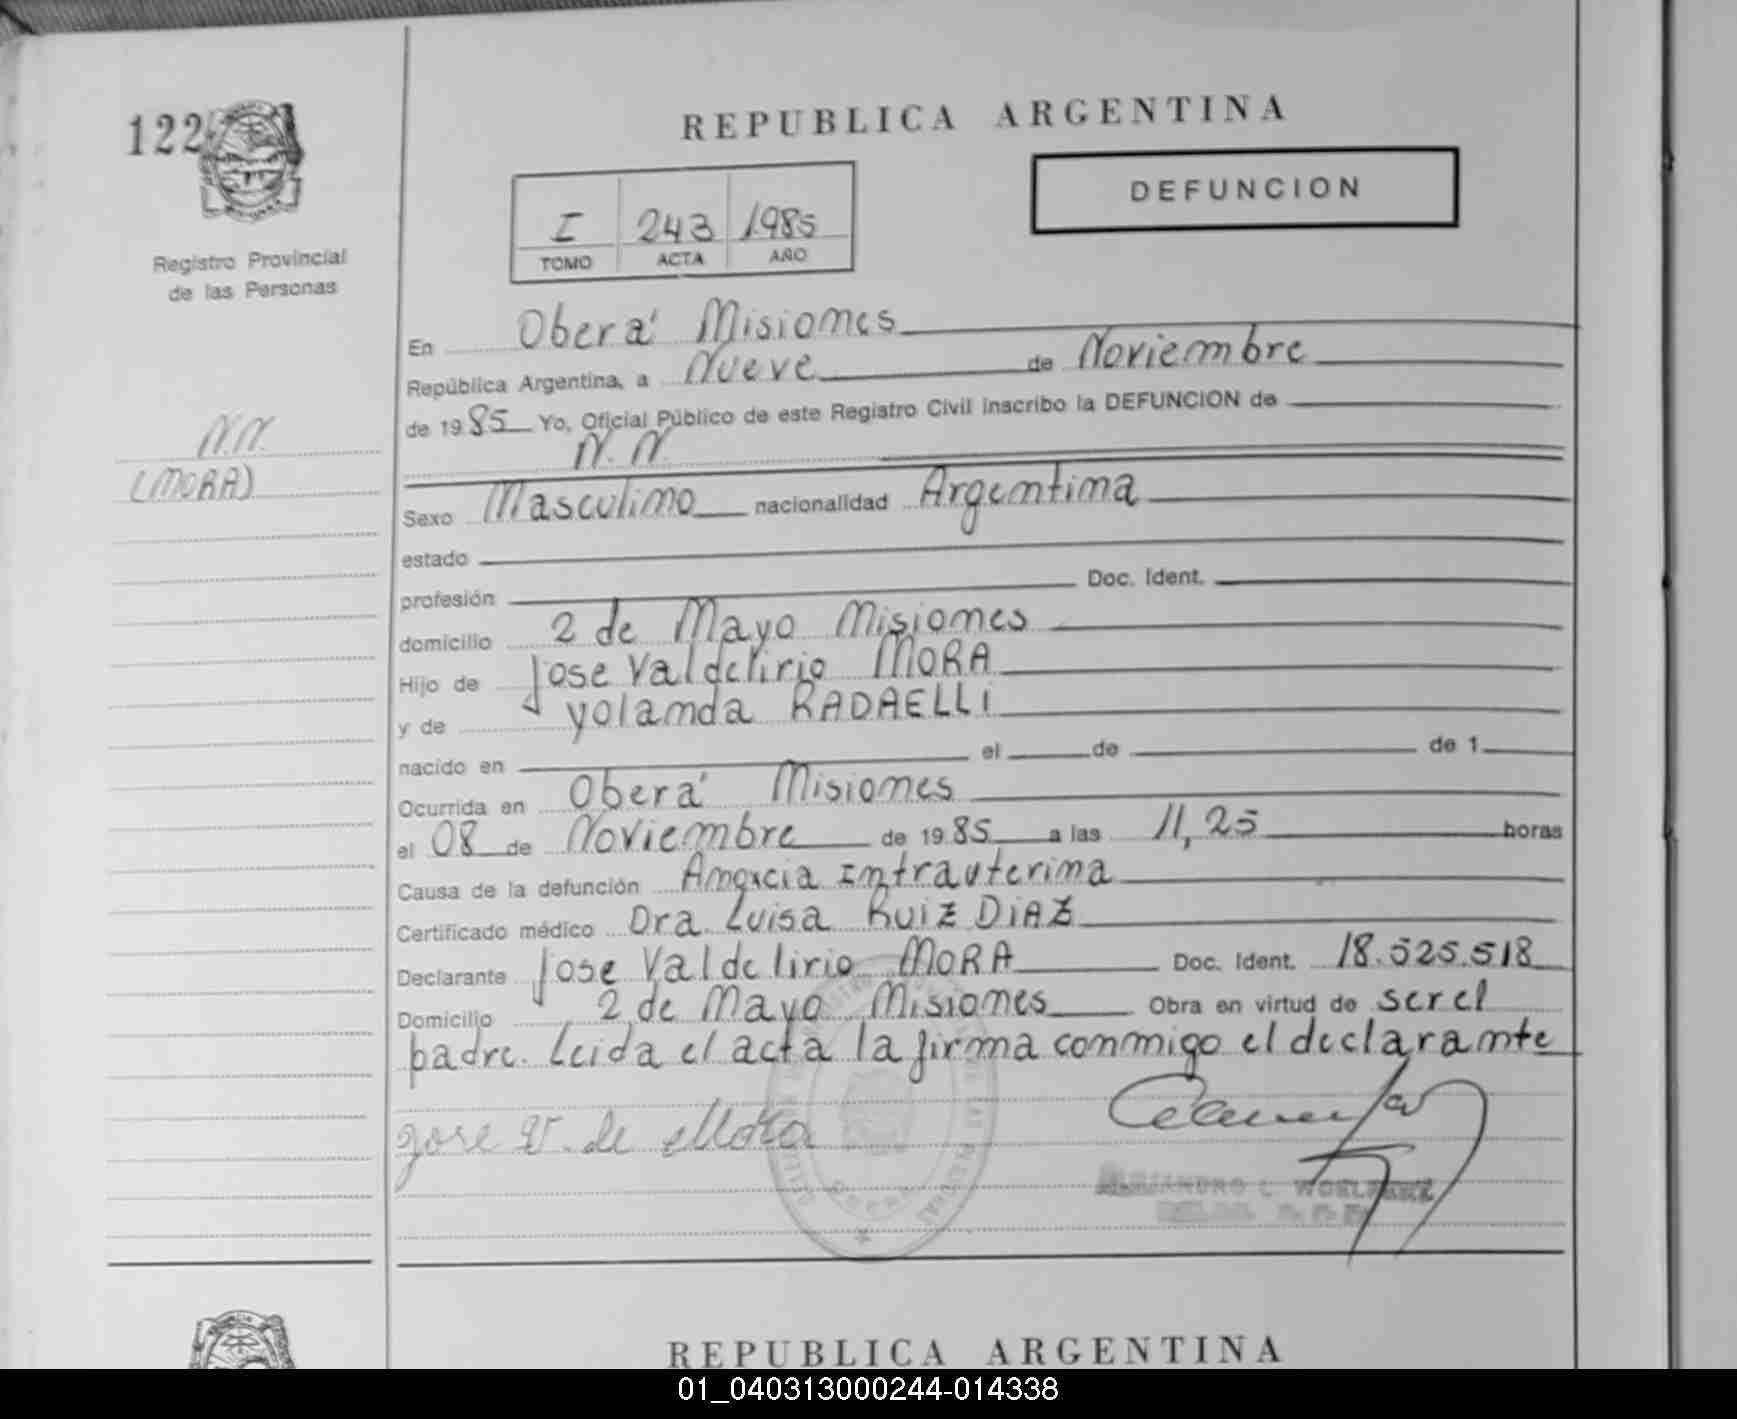 122
REPUBLICA ARGENTINA
DEFUNCION
I 243 1985
TOMO ACTA AÑO
Registro Provincial
de las Personas
En Oberá Misiones
República Argentina, a Nueve de Noviembre
de 1985 Yo, Oficial Público de este Registro Civil inscribo la DEFUNCION de
N.N.
N.N.
(MORA)
Sexo Masculino nacionalidad Argentina
estado
profesión Doc. Ident.
domicilio 2 de Mayo Misiones
Hijo de Jose Valdelirio MORA
y de yolanda RADAELLI
nacido en el de de 1
Ocurrida en Oberá Misiones
el 08 de Noviembre de 1985 a las 11,25 horas
Causa de la defunción Anoxcia Intrauterina
Certificado médico Dra. Luisa RUIZ DIAZ
Declarante Jose Valdelirio MORA Doc. Ident. 18.525.518
Domicilio 2 de Mayo Misiones Obra en virtud de ser el
padre. Leida el acta la firma conmigo el declarante
jose V. de Mora
ALEJANDRO C.
REPUBLICA ARGENTINA
01_040313000244-014338